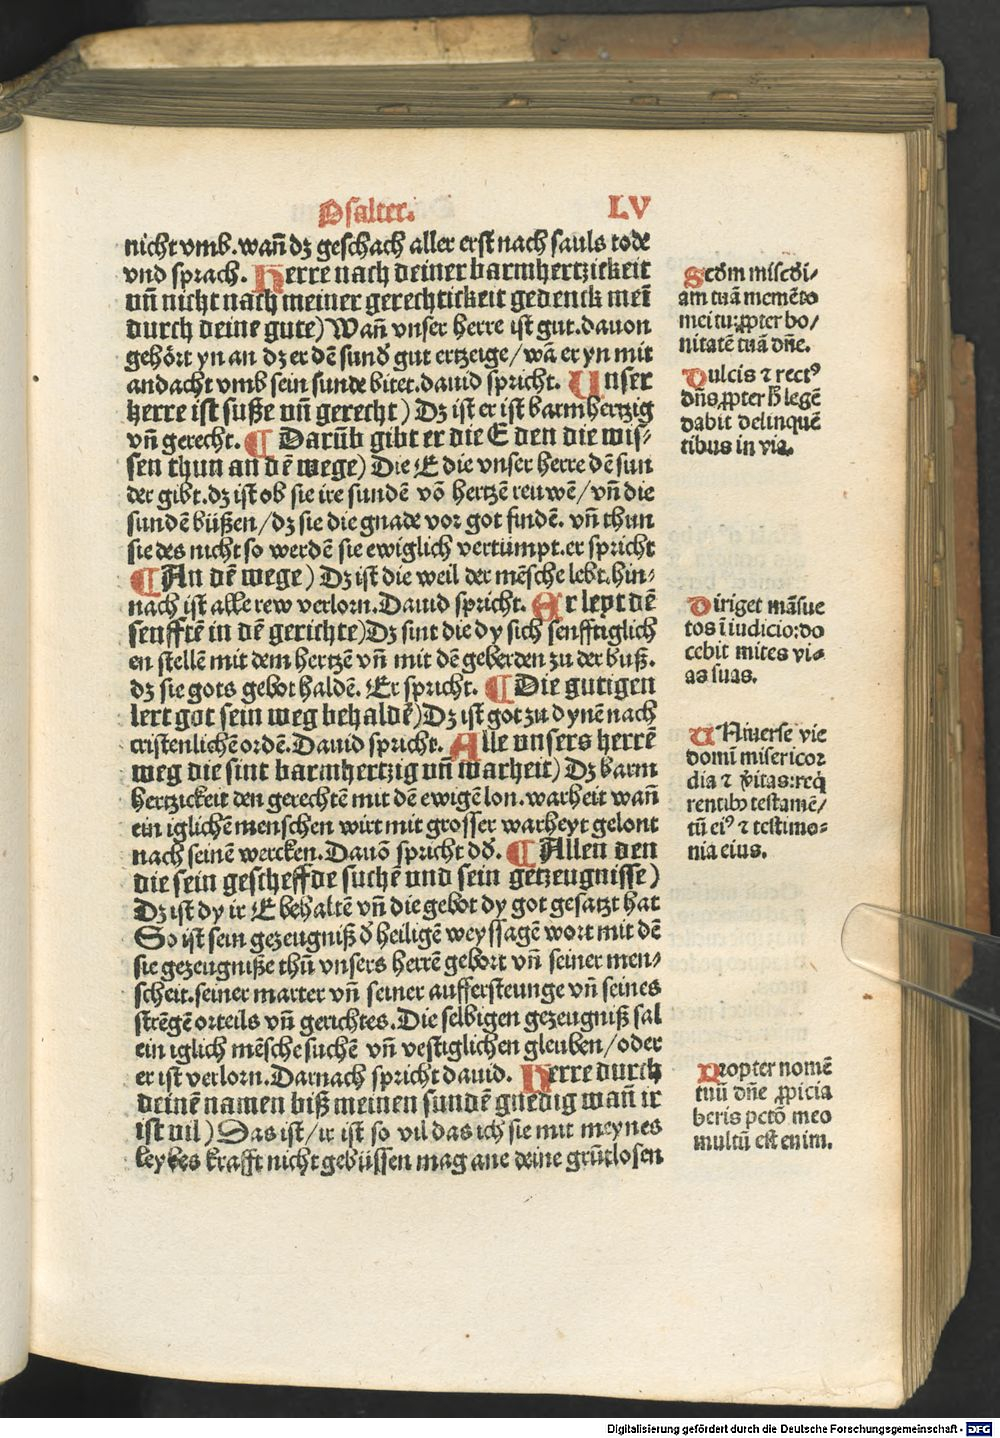 Psalter.
LV
nicht vmb. wañ dz geschach aller erst nach sauls tode
vnd sprach. Herre nach deiner barmhertzickeit
vñ nicht nach meiner gerechtickeit gedenck meī
durch deine gute) Wañ vnser herre ist gut. dauon
gehört yn an dz er dē sund' gut ertzeige/ wā er yn mit
andacht vmb sein sunde bitet. dauid spricht. Unser
herre ist suße vñ gerecht) Dz ist er ist barmhertzig
vñ gerecht. ¶ Darūb gibt er die E den die mis⸗
sen thun an dē wege) Die E die vnser herre dē sun
der gibt. dz ist ob sie ire sundē vō hertzē reuwē/ vñ die
sundē büßen/ dz sie die gnade vor got findē. vñ thun
sie des nicht so werdē sie ewiglich vertümpt. er spricht
¶ An dē wege) Dz ist die weil der mēsche lebt. hin⸗
nach ist alle rew verlorn. Dauid spricht. Er leyt dē
senfftē in dē gerichte) Dz sint die dy sich senfftiglich
en stellē mit dem hertzē vñ mit dē geberden zu der buß.
dz sie gots gebot haldē. Er spricht. ¶ Die gutigen
lert got sein weg behaldē) Dz ist got zu dynē nach
cristenlichē ordē. Dauid spricht. Alle vnsers herrē
weg die sint barmhertzig vñ warheit) Dz barm
hertzickeit den gerechtē mit dē ewigē lon. warheit wañ
ein iglichē menschen wirt mit grosser warheyt gelont
nach seinē wercken. Dauō spricht d'd'. ¶ Allen den
die sein gescheffde suchē vnd sein getzeugnisse)
Dz ist dy ir E behaltē vñ die gebot dy got gesatzt hat
So ist sein gezeugniß d' heiligē weyssagē wort mit dē
sie gezeugniße thū vnsers herrē gebort vñ seiner men⸗
scheit. seiner marter vñ seiner auffersteunge vñ seines
strēgē orteils vñ gerichtes. Die selbigen gezeugniß sal
ein iglich mēsche suchē vñ vestiglichen gleuben/ oder
er ist verlorn. Darnach spricht dauid. Herre durch
deinē namen biß meinen sundē gnedig wañ ir
ist vil) Das ist/ ir ist so vil das ich sie mit meynes
leybes krafft nicht gebüssen mag ane deine grūtlosen
Scd'm misc'di/
am tuā memēto
mei tu: ꝓpter bo/
nitatē tuā dñe.
Dulcis ⁊ rectꝰ
dñs ꝓpter h' legē
dabit delinquē
tibus in via.
Diriget māsue
tos ī iudicio: do
cebit mites vi⸗
as suas.
Uniuerse vie
domī misericor
dia ⁊ v'itas: req̄
rentibꝰ testamē/
tū eiꝰ ⁊ testimo⸗
nia eius.
Propter nomē
tuū dñe ꝓpicia
beris pctō meo
multū est enim.
Digitalisierung gefördert durch die Deutsche Forschungsgemeinschaft - DFG